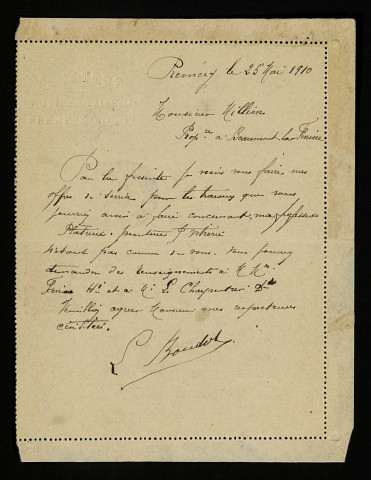 Prémery le 25 Mai 1910
Monsieur Millien
Prop.re a Beaumont-la-Ferrière
Par la présente je viens vous faire mes
offres de service pour les travaux que vous
pouvez avoir à faire concernant ma profession
Platrerie, peinture
N'étant pas connu de vous. vous pouvez
demander des renseignements à M.
et a M. Charpentier
Veuillez agréer Monsieur mes respectueuses
L Boudot